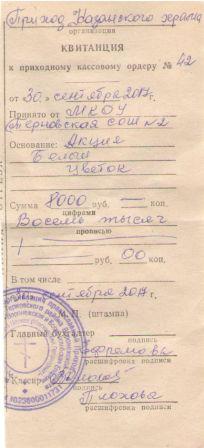 Приход Казанского храма
организация
КВИТАНЦИЯ
к приходному кассовому ордеру № 42
от 30 " сентября 2017г.
Принято от МКОУ
Терновская СОШ № 2
Основание: Акция
Белый
Цветок
Сумма 8000 руб. — коп.
цифрами
Восемь тысяч
прописью
руб. 00 коп.
В том числе
сентября 2017г.
М.П. (штампа)
Главный бухгалтер
подпись
расшифровка подписи
Кассир
подпись
расшифровка подписи